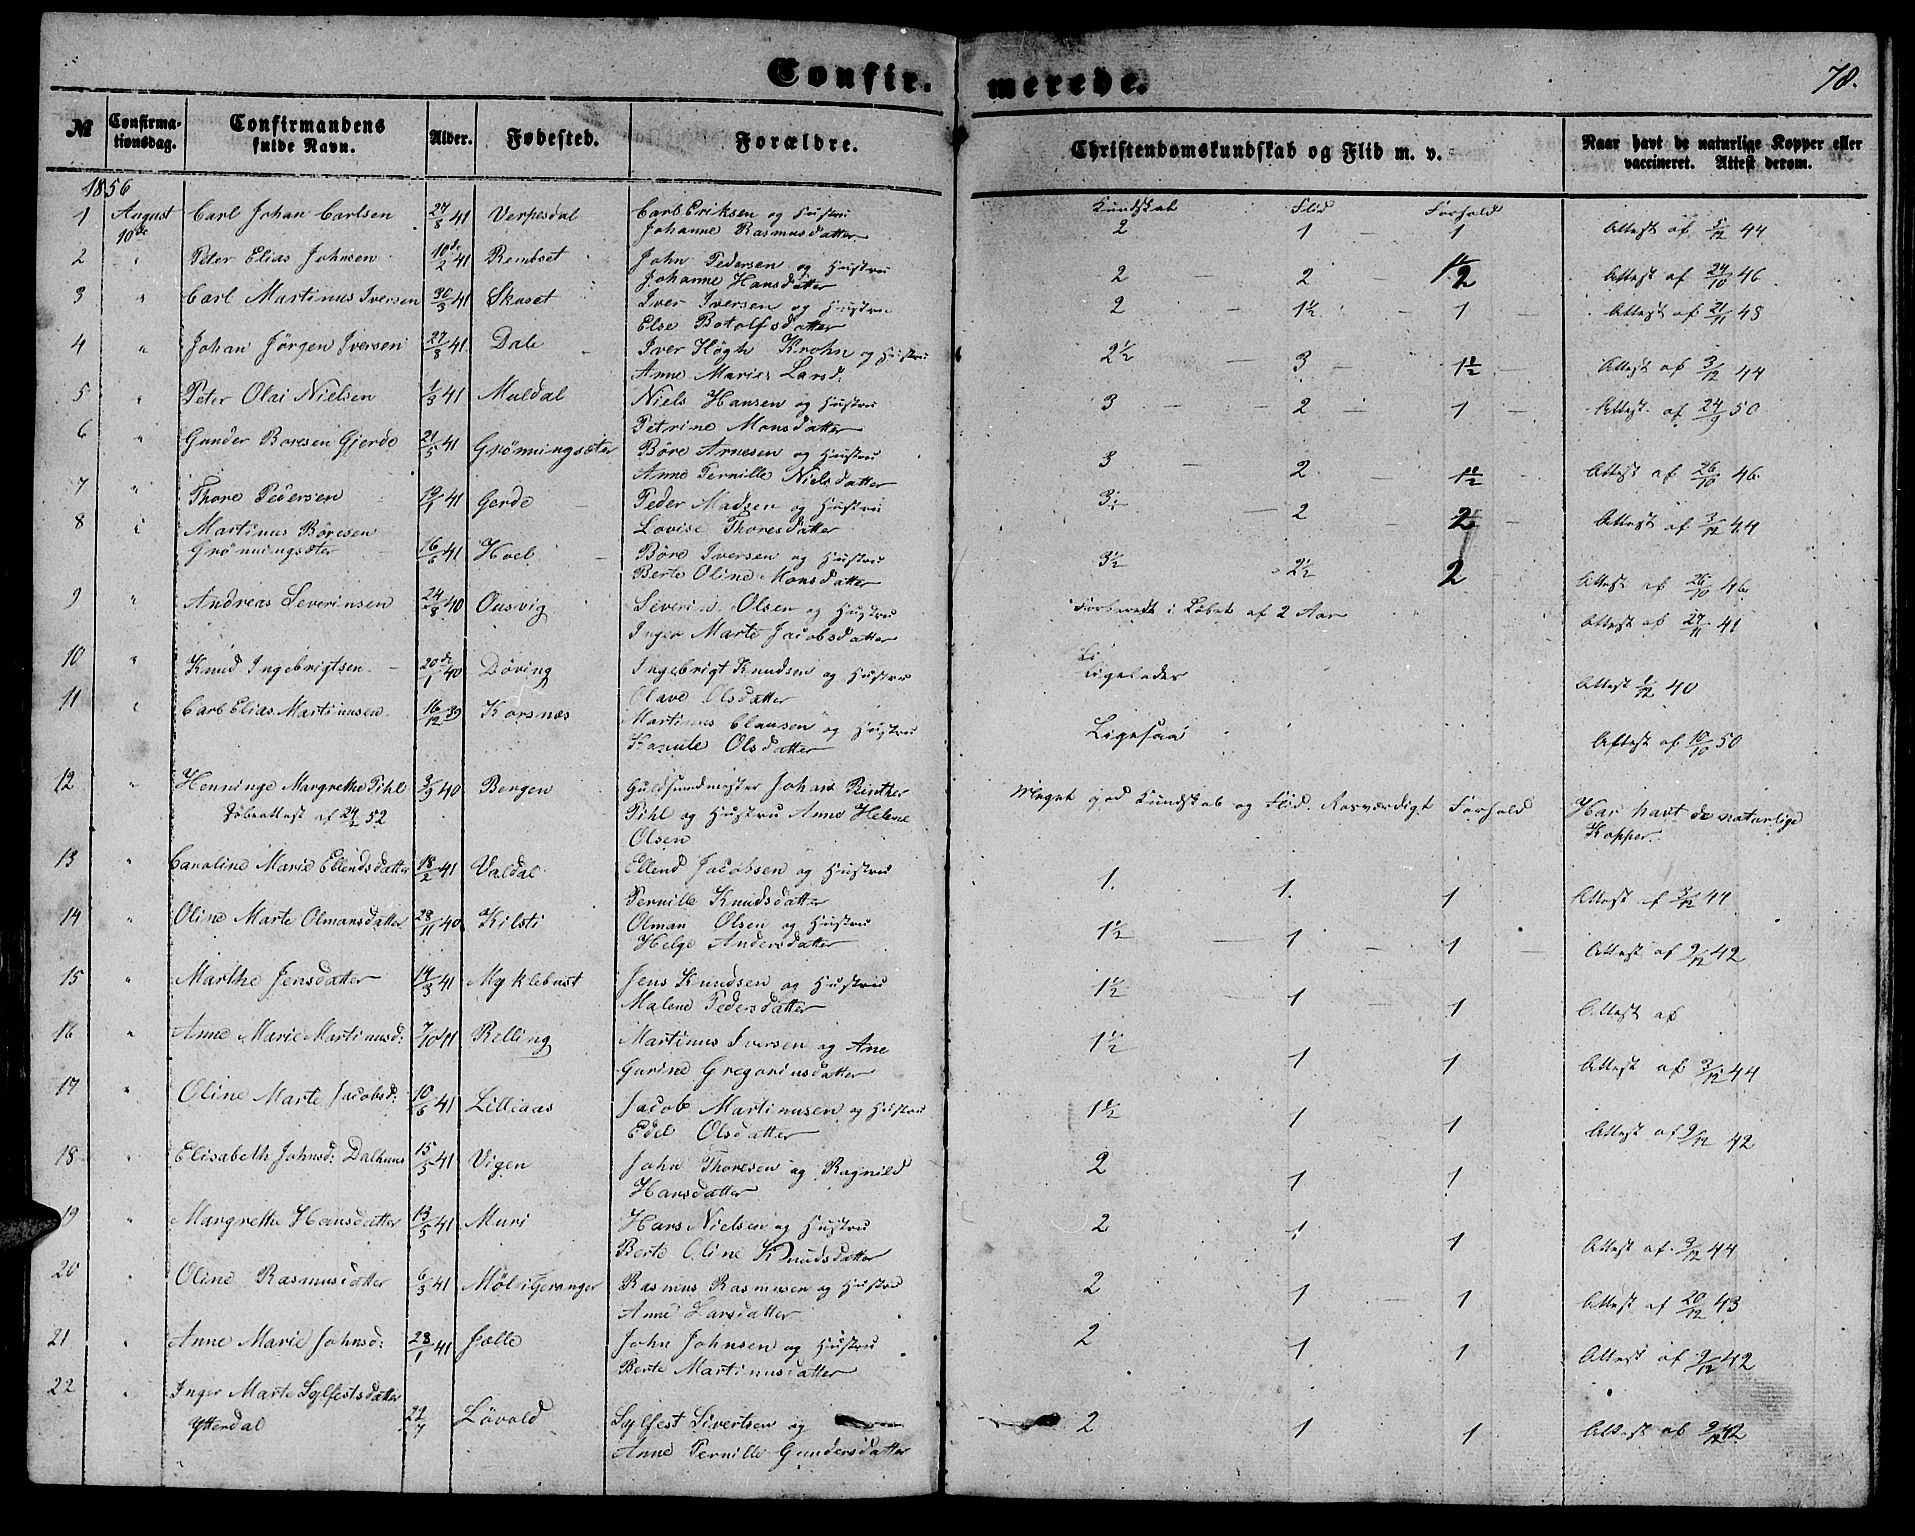 Confir. merede.
78.
№ Confirma-tionsdag. Confirmandens fulde Navn. Alder. Fødested. Forældre. Christendomskundskab og Flid m. v. Naar havt de naturlige Kopper eller vaccineret. Attest derom.
1856
Kundskab Flid Forhold
1 August 10de Carl Johan Carlsen 27/8 41 Verpesdal Carl Eriksen og Hustru 2 1 1 Attest af 5/12 44
Johanne Rasmusdatter
2 " Peter Elias Johnsen 10de/2 41 Rembset John Pedersen og Hustru 2 2 Attest af 24/10 46
Johanne Hansdatter
3 " Carl Martinus Iversen 30/3 41 Skuset Iver Iversen og Hustru 2 1½ 1 Attest af 21/11 48
Else Botolfsdatter
4 " Johan Jørgen Iversen 27/8 41 Dale Iver Høgh Krohn og Hustru 2½ 3 1½ Attest af 3/12 44
Anne Marie Larsd.
5 " Peter Olai Nielsen 1/3 41 Muldal Niels Hansen og Hustru 3 2 1 Attest af 24/9 50
Petrine Monsdatter
6 " Gunder Boresen Gjerde 21/5 41 Grønningsæter Børe Arnesen og Hustru 3 2 1½ Attest af 26/10 46
Anne Pernille Nielsdatter
7 " Thore Pedersen 41 Gerde Peder Madsen og Hustru 2 2 Attest af 3/12 44
Lovise Thoresdatter
8 " Martinus Børesen
Grønningsæter 16/6 41 Hoel Børe Iversen og Hustru 3½ 2½ 2 Attest af 26/10 46
Berte Oline Monsdatter
9 " Andreas Severinsen 24/8 40 Ousvig Severin Olsen og Hustru Forberedt i Løbet af 2 Aar Attest af 27/11 41
Inger Marte Jacobsdatter
10 " Knud Ingebrigtsen 20de/1 40 Døving Ingebrigt Knudsen og Hustru Ligeledes Attest 1/12 40
Olave Olsdatter
11 " Carl Elias Martinusen 16/12 39 Korsnæs Martinus Clausen og Hustru Ligesaa Attest af 10/10 50
Kanute Olsdatter
12 " Henninge Margrethe Pihl 3/9 40 Bergen Guldsmedmester Johan Rinther Meget god Kundskab og Flid. Rosværdigt Forhold Har havt de naturlige
Døbeattest af 24/2 52 Pihl og Hustru Anne Helene Kopper.
Olsen
13 " Caroline Marie Ellendsdatter 18/2 41 Valdal Ellend Jacobsen og Hustru 1. 1. 1 Attest af 3/12 44
Pernille Knudsdatter
14 " Oline Marte Olmansdatter 28/11 40 Kilsti Olman Olsen og Hustru 1½ 1 1 Attest af 9/12 42
Helge Andersdatter
15 " Marthe Jensdatter 14/3 41 Myklebust Jens Knudsen og Hustru 1½ 1 1 Attest af
Malene Pedersdatter
16 " Anne Marie Martinusd: 7/10 41 Relling Martinus Iversen og Ane 1½ 1 1 Attest af 3/12 44
Gurine Gregoriusdatter
17 " Oline Marte Jacobsd: 10/6 41 Lilliaas Jacob Martinusen og Hustru 1½ 1 1 Attest af 9/12 42
Edel Olsdatter
18 " Elisabeth Johnsd: Dalhuus 15/5 41 Vigen John Thoresen og Ragnild 2 1 1
Hansdatter
19 " Margrethe Hansdatter 13/5 41 Muri Hans Nielsen og Hustru 2 1 1 Attest af 3/12 44
Berte Oline Knudsdatter
20 " Oline Rasmusdatter 6/3 41 Møl i Geranger Rasmus Rasmusen og Hustru 2 1 1 Attest af 20/12 43
Anne Larsdatter
21 " Anne Marie Johnsd: 28/1 41 Fælle John Johnsen og Hustru 2 1 1 Attest af 9/12 42
Berte Martinusdatter
22 " Inger Marte Sylfestsdatter
Ytterdal 22/7 Løvold Sylfest Sivertsen og 2 1 1 Attest af 9/12 42
Anne Pernille Gundersdatter